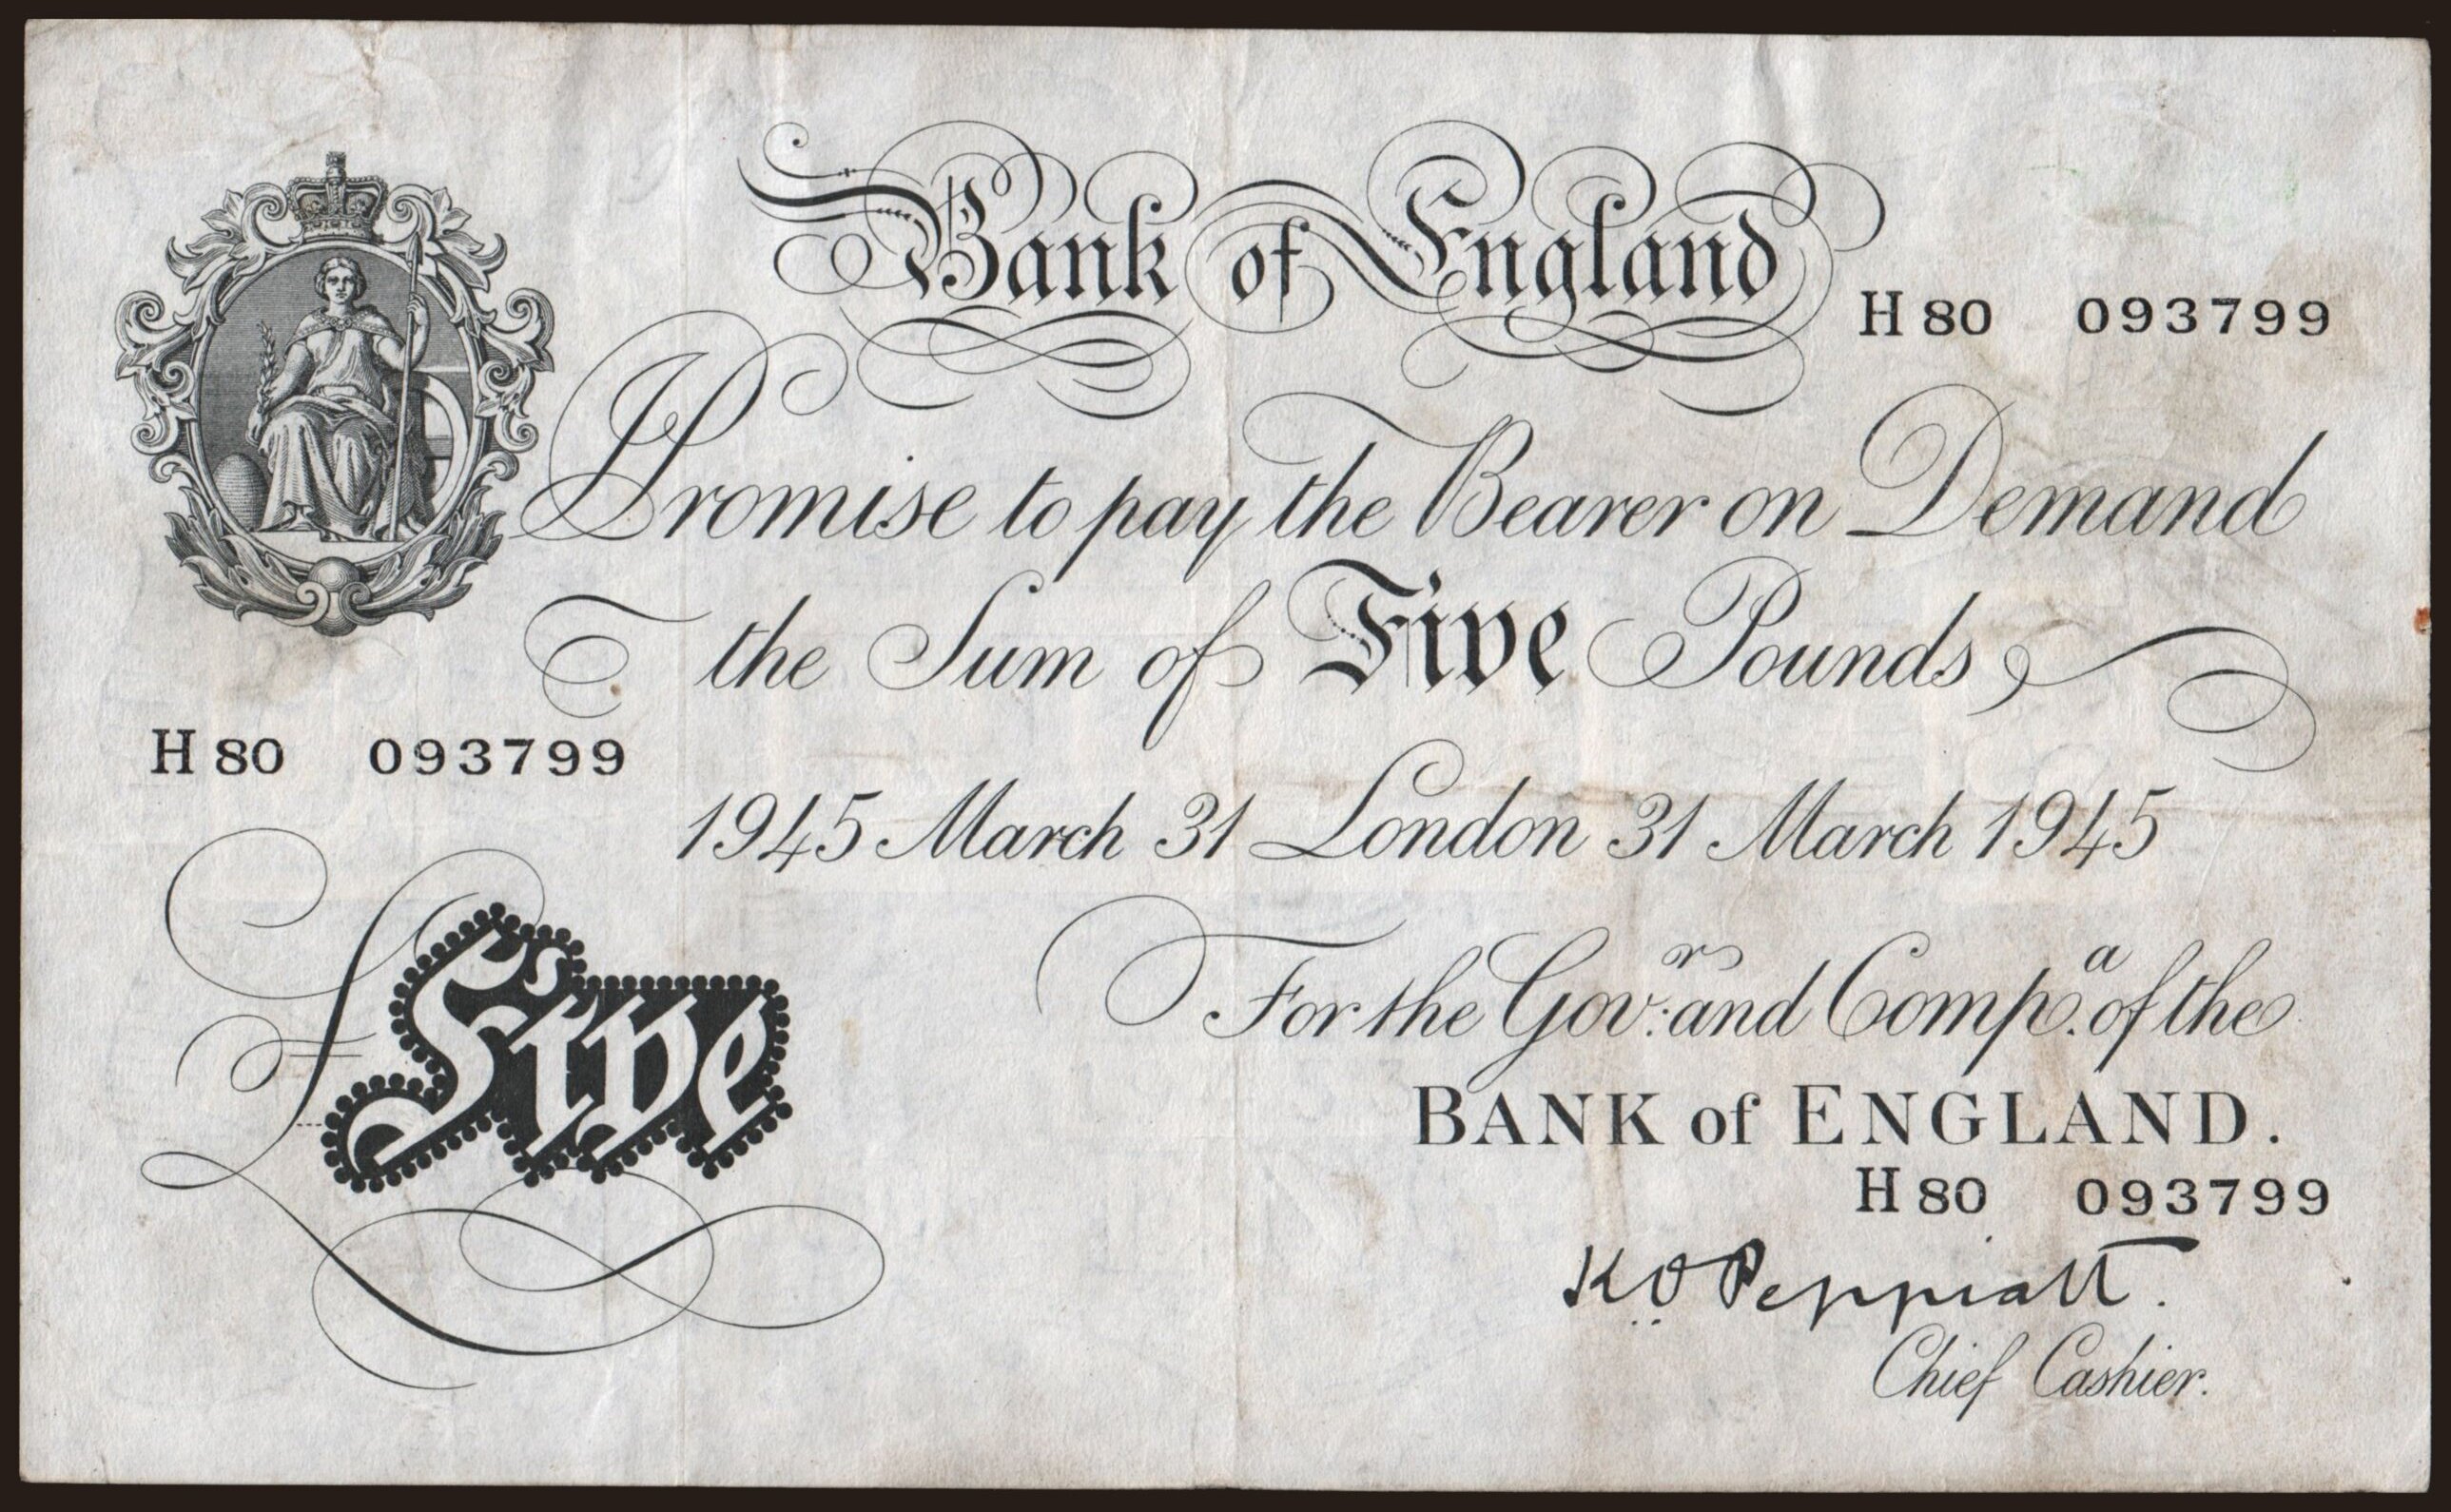 Bank of England
H 80 093799
I Promise to pay the Bearer on Demand
the Sum of Five Pounds
H 80 093799
1945 March 31 London 31 March 1945
For the Gov.r and Comp.a of the
BANK of ENGLAND.
£ Five
H 80 093799
K O Peppiatt.
Chief Cashier.